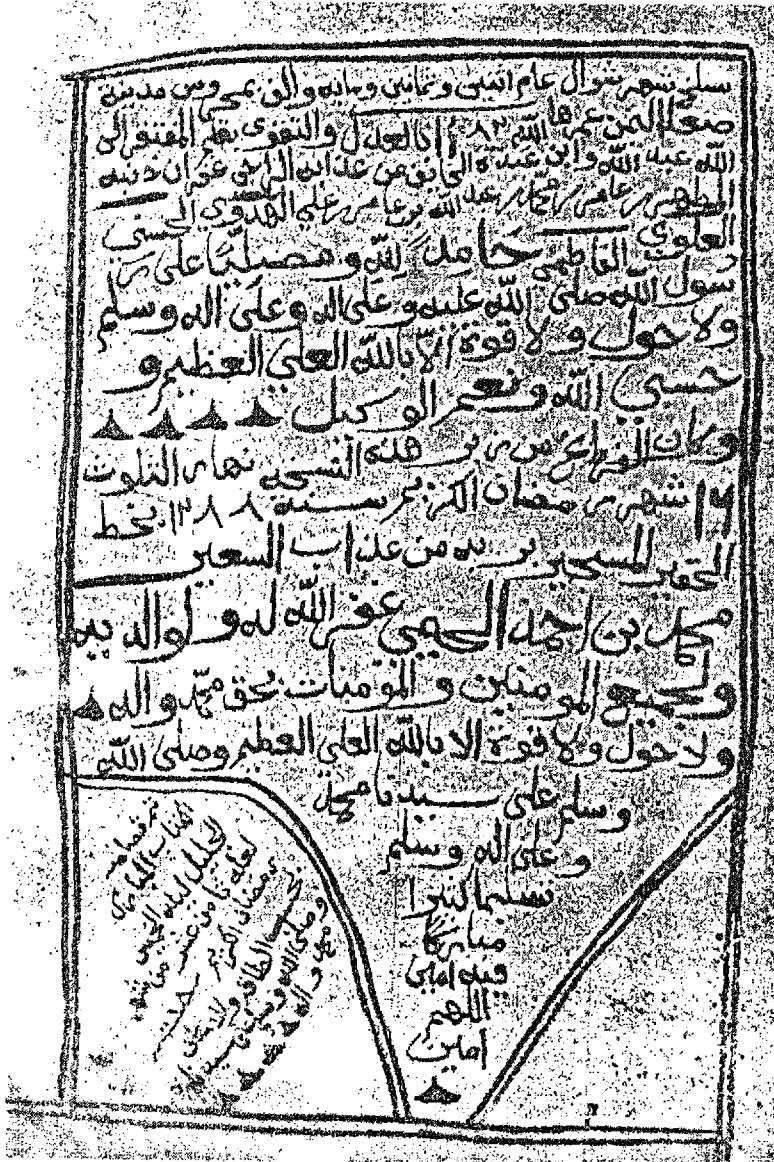 بسلخ شهر شوال عام اثنين وثمانين ومايه والف بمحروس مدينة
صنعا اليمن عمرها الله ٨٢ بالعدل والتقوى بقلم المفتقر الى
الله عبد الله وابن عبده الخائف من عذابه الراجي غفران ذنبه
المطهر بن عامر بن محمد بن عبد الله بن عامر بن علي الهدوي الحسني
العلوي الفاطمي حامدًا لله ومصليًا على
رسول الله صلى الله عليه وعلى اله وعلى اله وسلم
ولا حول ولا قوة الا بالله العلي العظيم و
حسبي الله ونعم الوكيل
وكان الفراغ من زبر هذه النسخه نهار الثلوث
شهر رمضان الكريم سنة ١٢٨٨ بخط
الحقير المستجير بربه من عذاب السعير
محمد بن احمد الحيمي غفر الله له ولوالديه
ولجميع المومنين والمومنات بحق محمد واله
ولا حول ولا قوة الا بالله العلي العظيم وصلى الله
وسلم على سيدنا محمد
وعلى اله وسلم
تسليما كثيرا
مباركا
فيه امين
اللهم
امين
الكتاب المبارك
الجليل ليله الخميس
لعله ثامن عشر من شهر
رمضان الكريم سنة
وصلى الله وسلم على سيدنا
محمد واله